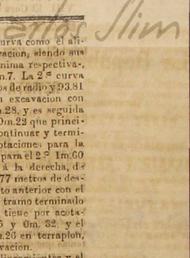 Slim
curva como el ali-
vacion, siendo sus
nima respectiva-
m.7. La 2ª curva
os de radio y 93.81
n excavacion con
m.28, y es seguida
0m.22 que princi-
ontinuar y termi-
otaciones para la
para el 2º 1m.60
á la derecha, de
77 metros de des-
to anterior con el
tramo terminado
tiene por acota-
6 y 0m. 32, y el
m.26 en terraplen,
vacion.